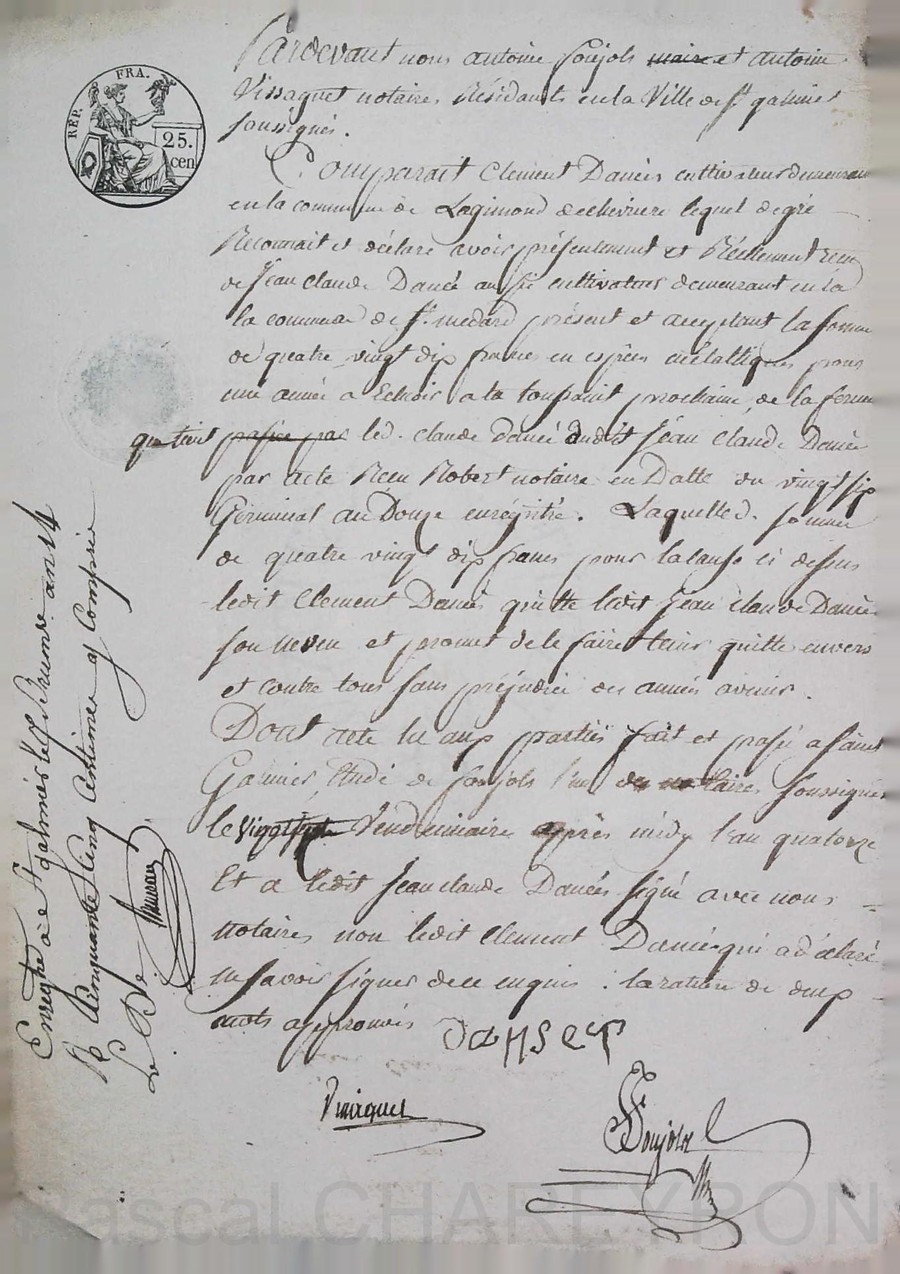 REP. FRA.
25.
cen
Pardevant nous antoine Soujols maire et antoine
Vissaguet notaires Résidants en la Ville de St galmier
soussignés.
Comparait Clement Dancés cultivateur demeurant
en la commune de Lagimond de chevriere lequel de gré
Reconnait et déclare avoir présentement et Réellement reçu
de Jean Claude Dancé aussi cultivateur demeurant en la
la commune de St. medard présent et acceptant la somme
de quatre vingt dix francs en espèces métalliques pour
une année a Echoir a la toussaint prochaine, de la ferme
que tient passée par led. Claude Dancé dudit Jean Claude Dancé
par acte Recu Robert notaire en Datte du vingt six
Germinal an Douze enregistré. Laquelle d. somme
de quatre vingt dix francs pour la cause ci dessus
ledit Clement Dancés quitte ledit Jean Claude Dancé
son neveu et promet de le faire tenir quitte envers
et contre tous sans préjudice des années avenir.
Dont acte lu aux parties fait et passé a saint
Galmier, Etude de Soujols l'un des notaires soussignés
le vingt sept Vendemiaire après midy l'an quatorze
Et a ledit Jean Claude Dancés signé avec nous
notaires non ledit Clement Dancés qui a déclaré
ne savoir signer de ce enquis : la rature de deux
mots approuvés
DaNSET
Vissaguet
Soujols
Enregistré à St galmier le Brumaire an 14
R cinquante cinq centimes y compris
Le De